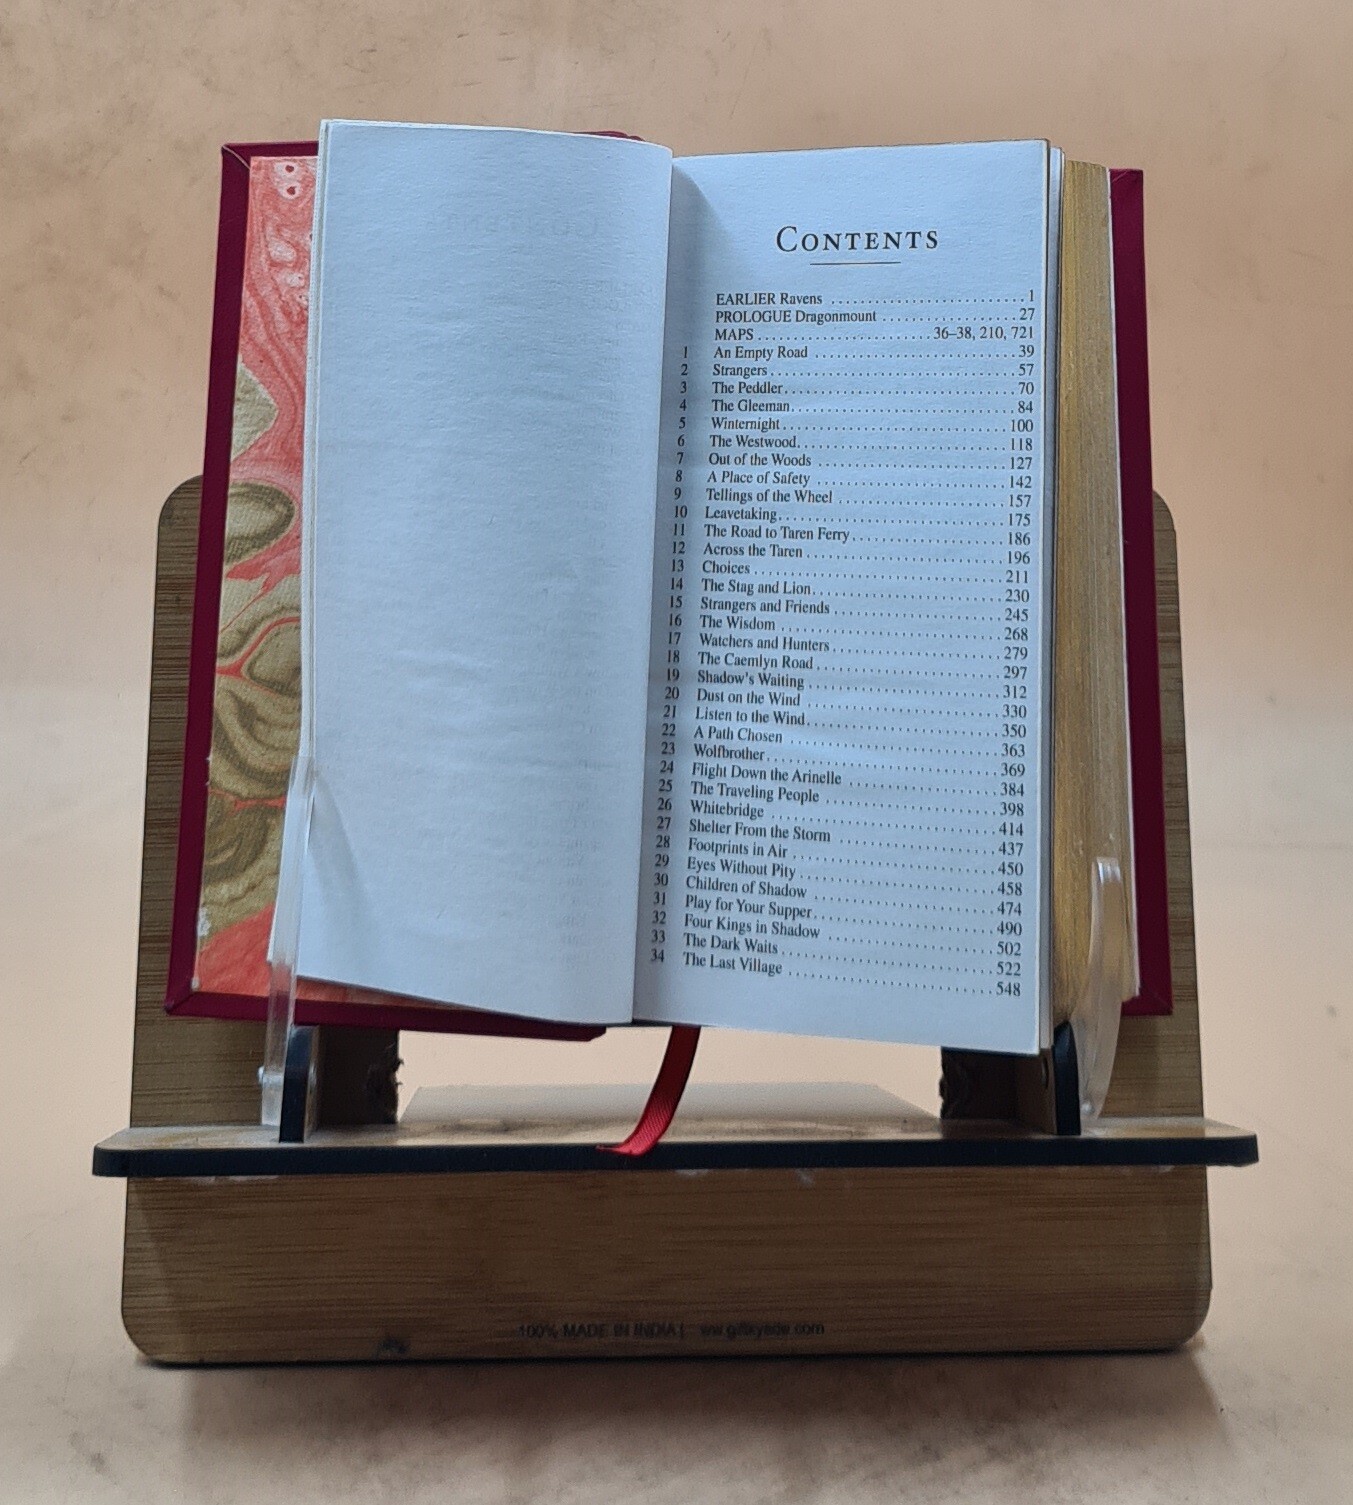 CONTENTS
EARLIER Ravens ........................... 1
PROLOGUE Dragonmount ................... 27
MAPS ........................ 36–38, 210, 721
1 An Empty Road ........................... 39
2 Strangers ................................. 57
3 The Peddler .............................. 70
4 The Gleeman ............................. 84
5 Winternight .............................. 100
6 The Westwood ........................... 118
7 Out of the Woods ........................ 127
8 A Place of Safety ........................ 142
9 Tellings of the Wheel .................... 157
10 Leavetaking ............................. 175
11 The Road to Taren Ferry ................. 186
12 Across the Taren ........................ 196
13 Choices ................................. 211
14 The Stag and Lion ....................... 230
15 Strangers and Friends ................... 245
16 The Wisdom ............................. 268
17 Watchers and Hunters ................... 279
18 The Caemlyn Road ....................... 297
19 Shadow's Waiting ........................ 312
20 Dust on the Wind ........................ 330
21 Listen to the Wind ...................... 350
22 A Path Chosen .......................... 363
23 Wolfbrother ............................. 369
24 Flight Down the Arinelle ................ 384
25 The Traveling People .................... 398
26 Whitebridge ............................. 414
27 Shelter From the Storm .................. 437
28 Footprints in Air ........................ 450
29 Eyes Without Pity ....................... 458
30 Children of Shadow ...................... 474
31 Play for Your Supper .................... 490
32 Four Kings in Shadow ................... 502
33 The Dark Waits .......................... 522
34 The Last Village ......................... 548
100% MADE IN INDIA |